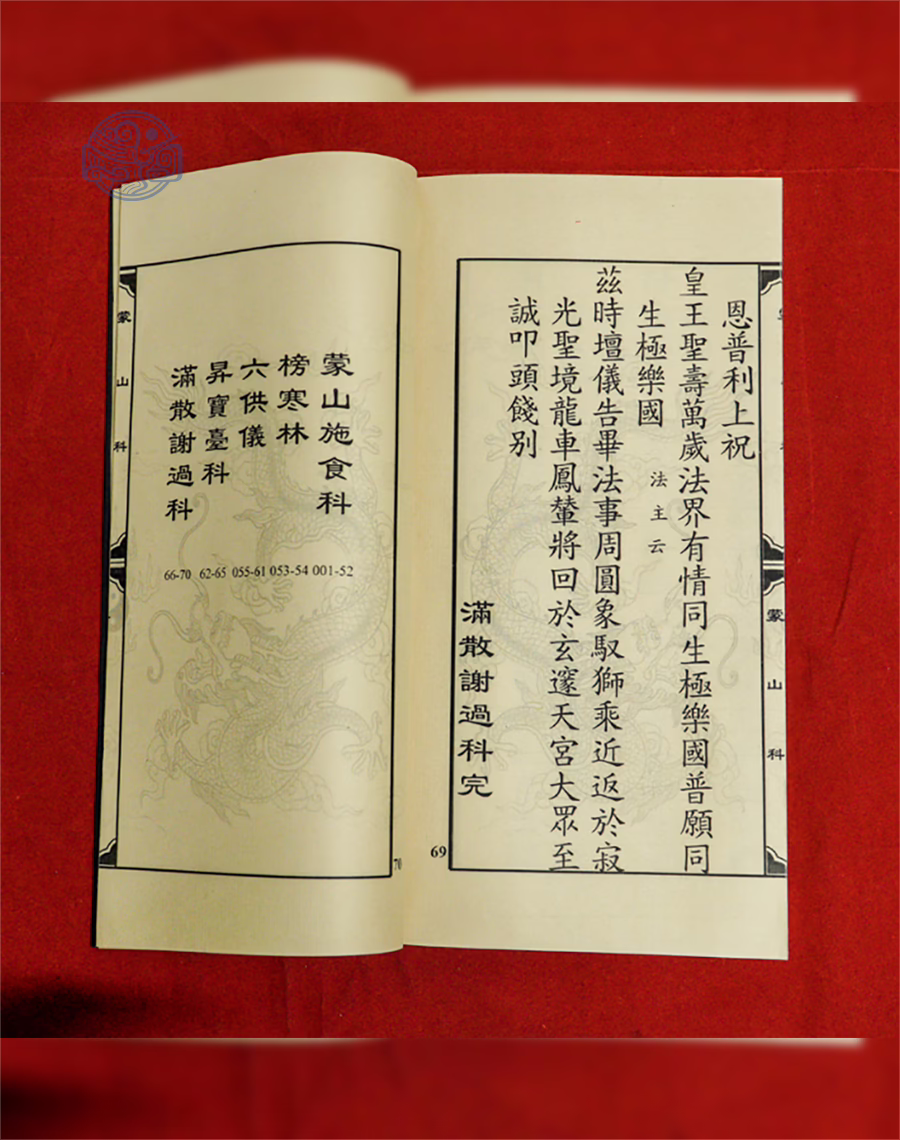 恩普利上祝
皇王聖壽萬歲法界有情同生極樂國普願同
生極樂國 法主云
茲時壇儀告畢法事周圓象馭獅乘近返於寂
光聖境龍車鳳輦將回於玄邃天宮大眾至
誠叩頭餞別
滿散謝過科完
69
蒙山科
蒙山施食科
榜寒林
六供儀
昇寶臺科
滿散謝過科
66-70 62-65 055-61 053-54 001-52
70
蒙山科